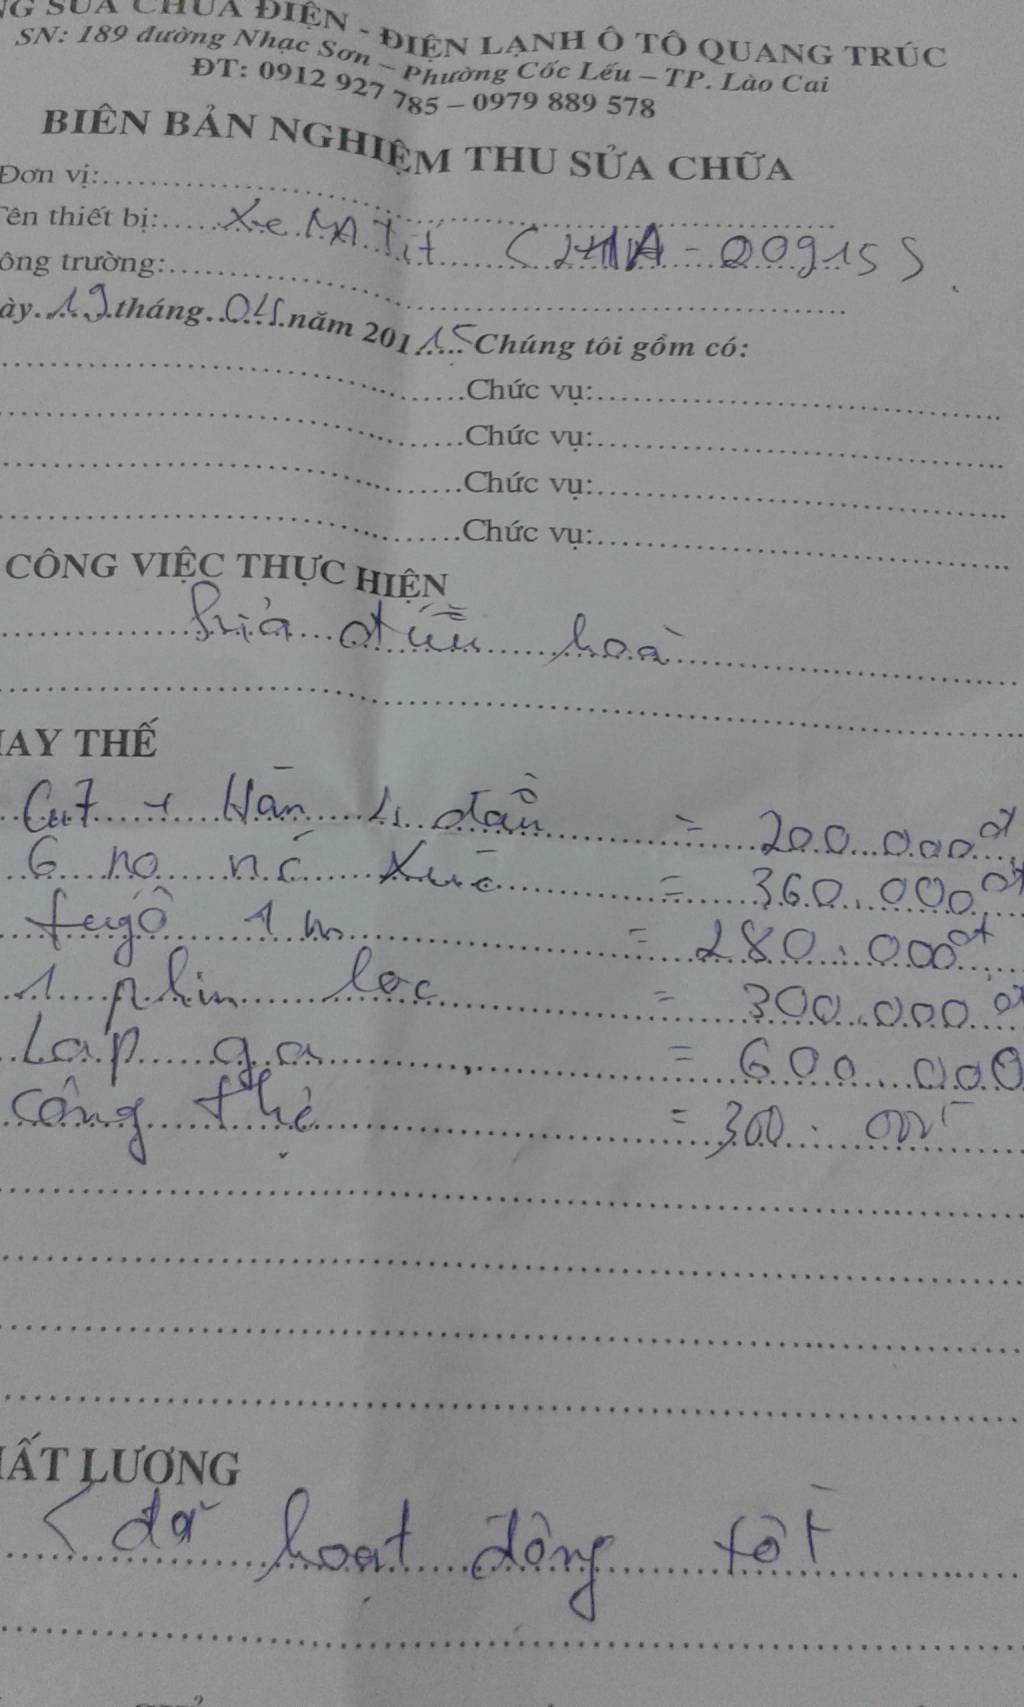 NG SỬA CHỮA ĐIỆN - ĐIỆN LẠNH Ô TÔ QUANG TRÚC
SN: 189 đường Nhạc Sơn – Phường Cốc Lếu – TP. Lào Cai
ĐT: 0912 927 785 – 0979 889 578
BIÊN BẢN NGHIỆM THU SỬA CHỮA
Đơn vị:
Tên thiết bị: Xe MATit 009155
ông trường:
ày 19 tháng 04 năm 201 15 Chúng tôi gồm có:
Chức vụ:
Chức vụ:
Chức vụ:
Chức vụ:
CÔNG VIỆC THỰC HIỆN
điều hoà
HAY THẾ
Cut + Hàn 4 đầu = 200.000đ
6 = 360.000đ
tuyô 1 m = 280.000đ
1 phin loc = 300.000đ
Lap ga = 600.000
công thợ = 300.000
HẤT LƯƠNG
đã hoạt đông tốt